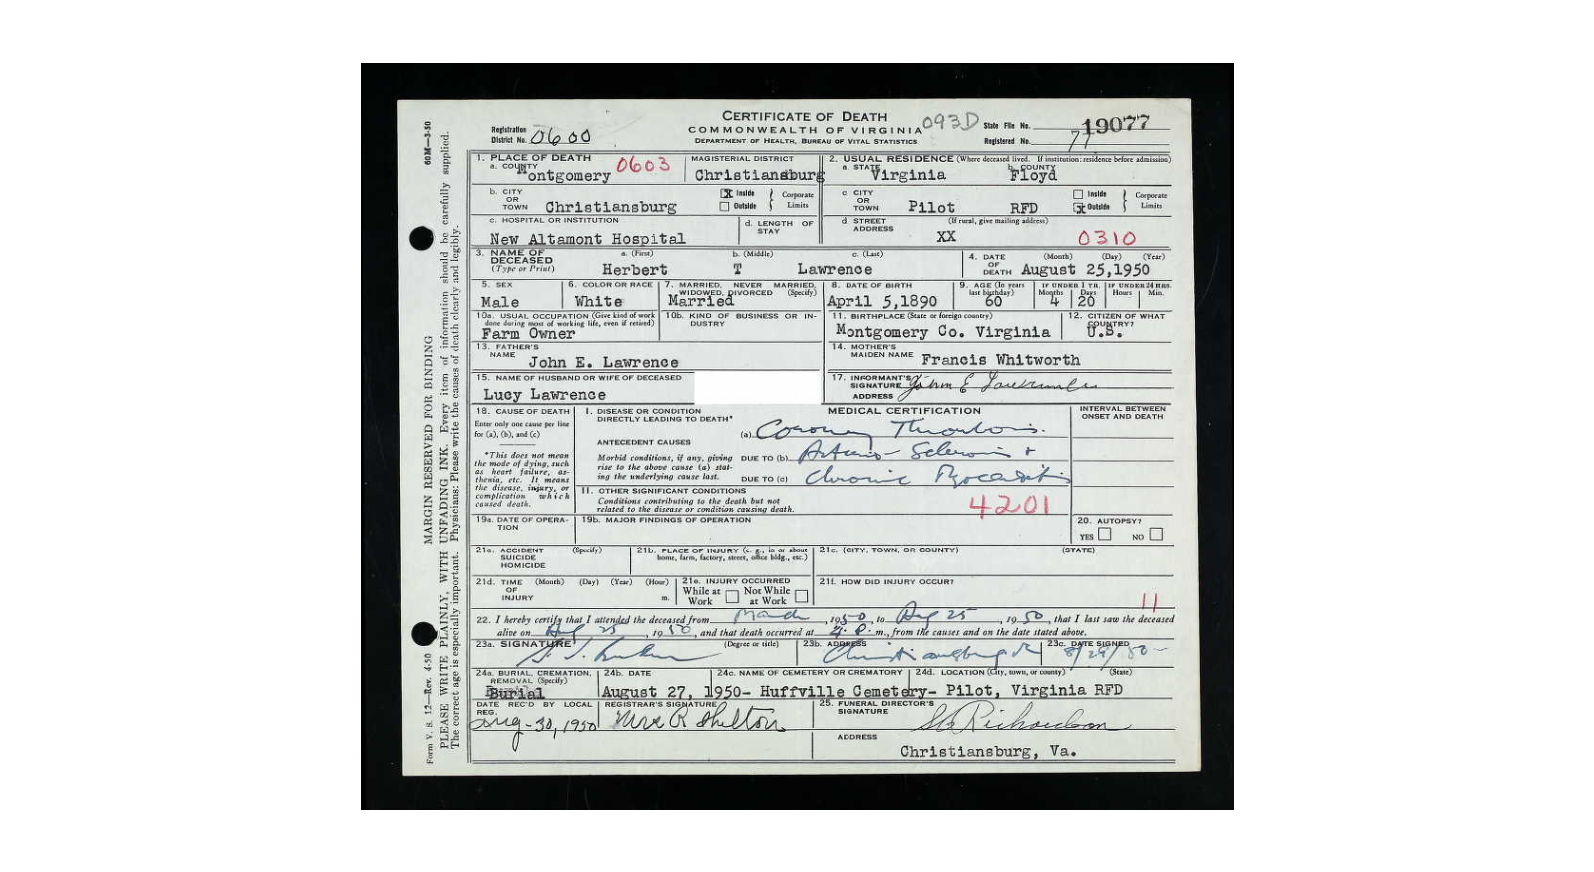 CERTIFICATE OF DEATH
COMMONWEALTH OF VIRGINIA
DEPARTMENT OF HEALTH, BUREAU OF VITAL STATISTICS
093D
Registration District No. 0600
State File No. 19077
Registered No. 77
60M—3-50
MARGIN RESERVED FOR BINDING
PLEASE WRITE PLAINLY, WITH UNFADING INK. Every item of information should be carefully supplied.
The correct age is especially important. Physicians: Please write the causes of death clearly and legibly.
Form V. s. 12—Rev. 4-50
1. PLACE OF DEATH
a. COUNTY Montgomery 0603
MAGISTERIAL DISTRICT Christiansburg
2. USUAL RESIDENCE (Where deceased lived. If institution: residence before admission)
a. STATE Virginia
b. COUNTY Floyd
b. CITY OR TOWN Christiansburg
Inside Outside Corporate Limits
c CITY OR TOWN Pilot RFD
Inside Outside Corporate Limits
c. HOSPITAL OR INSTITUTION
New Altamont Hospital
d. LENGTH OF STAY
d STREET ADDRESS (If rural, give mailing address)
XX 0310
3. NAME OF DECEASED (Type or Print)
a. (First) Herbert
b. (Middle) T
c. (Last) Lawrence
4. DATE OF DEATH (Month) (Day) (Year)
August 25,1950
5. SEX Male
6. COLOR OR RACE White
7. MARRIED, NEVER MARRIED, WIDOWED, DIVORCED (Specify) Married
8. DATE OF BIRTH April 5,1890
9. AGE (In years last birthday) 60
IF UNDER 1 YR. Months 4 Days 20
IF UNDER 24 HRS. Hours Min.
10a. USUAL OCCUPATION (Give kind of work done during most of working life, even if retired)
Farm Owner
10b. KIND OF BUSINESS OR INDUSTRY
11. BIRTHPLACE (State or foreign country)
Montgomery Co. Virginia
12. CITIZEN OF WHAT COUNTRY?
U.S.
13. FATHER'S NAME
John E. Lawrence
14. MOTHER'S MAIDEN NAME
Francis Whitworth
15. NAME OF HUSBAND OR WIFE OF DECEASED
Lucy Lawrence
17. INFORMANT'S SIGNATURE John E Lawrence
ADDRESS
18. CAUSE OF DEATH
Enter only one cause per line for (a), (b), and (c)
*This does not mean the mode of dying, such as heart failure, asthenia, etc. It means the disease, injury, or complication which caused death.
I. DISEASE OR CONDITION DIRECTLY LEADING TO DEATH*
MEDICAL CERTIFICATION
INTERVAL BETWEEN ONSET AND DEATH
(a) Coronary Thrombosis.
ANTECEDENT CAUSES
Morbid conditions, if any, giving rise to the above cause (a) stating the underlying cause last.
DUE TO (b) Arterio-Sclerosis +
DUE TO (c) Chronic Myocarditis
II. OTHER SIGNIFICANT CONDITIONS
Conditions contributing to the death but not related to the disease or condition causing death.
4201
19a. DATE OF OPERATION
19b. MAJOR FINDINGS OF OPERATION
20. AUTOPSY?
YES NO
21a. ACCIDENT SUICIDE HOMICIDE (Specify)
21b. PLACE OF INJURY (e. g., in or about home, farm, factory, street, office bldg., etc.)
21c. (CITY, TOWN, OR COUNTY) (STATE)
21d. TIME OF INJURY (Month) (Day) (Year) (Hour) m.
21e. INJURY OCCURRED
While at Work Not While at Work
21f. HOW DID INJURY OCCUR?
11
22. I hereby certify that I attended the deceased from March, 1950, to Aug 25, 1950, that I last saw the deceased
alive on Aug 25, 1950, and that death occurred at m., from the causes and on the date stated above.
23a. SIGNATURE (Degree or title)
23b. ADDRESS Christiansburg
23c. DATE SIGNED
24a. BURIAL, CREMATION, REMOVAL (Specify)
Burial
24b. DATE
August 27, 1950-
24c. NAME OF CEMETERY OR CREMATORY
Huffville Cemetery-
24d. LOCATION (City, town, or county) (State)
Pilot, Virginia RFD
DATE REC'D BY LOCAL REG.
Aug-30,1950
REGISTRAR'S SIGNATURE
Shelton
25. FUNERAL DIRECTOR'S SIGNATURE
Richardson
ADDRESS
Christiansburg, Va.